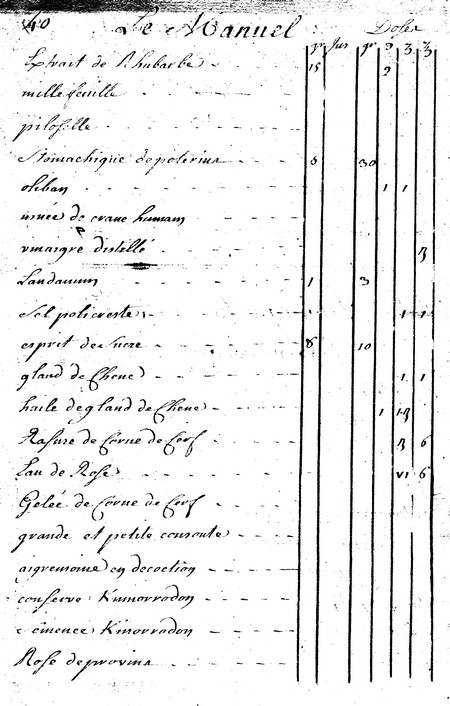 40 Le Manuel Doses
gr jus gr ℈ ʒ ℥
Extrait de Rhubarbe 15 2
mille feuille
piloselle
Stomachique de poterius 8 30
oliban 1 1
usnée de crane humain
vinaigre distellé ß
Laudanum 1 3
Sel policreste 1 1
esprit de Sucre 8 10
gland de Chene 1 1
huile de gland de Chene 1 1ß
Rasure de Corne de Cerf ß 6
Eau de Rose vi 6
Gelée de Corne de Cerf
grande et petite consoute
aigremoine en decoction
conserve Kinnorrodon
semence Kinorrodon
Rose de provins